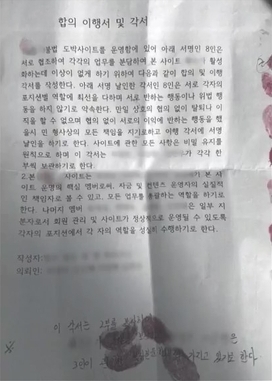 합의 이행서 및 각서
불법 도박사이트를 운영함에 있어 아래 서명인 8인은
서로 협조하여 각각의 업무를 분담하며 본 사이트 활성
화하는데 이상이 없게 하기 위하여 다음과 같이 합의 및 이행
각서를 작성한다. 아래 서명 날인한 각서인 8인은 서로 각자의
포지션별 역할에 최선을 다하며 서로 반하는 행동이나 위법 행
동을 하지 않기로 약속한다. 만일 상호의 협의 없이 탈퇴나 이
직을 할 수 없으며 협의 없이 서로의 이익에 반하는 행동을 했
을시 민 형사상의 모든 책임을 지기로하고 이행 각서에 서명
날인을 하기로 한다. 사이트에 관한 모든 사항은 비밀 유지를
원칙으로 하며 이 각서는 가 각각 한
부씩 보관하기로 한다.
2.본 사이트는 가 본 사
이트 운영의 핵심 멤버로써, 자금 및 컨텐츠 운영자의 실질적
인 책임자로 볼 수 있고, 모든 업무를 총괄하는 역할을 하기로
한다. 나머지 멤버 은 일부 지
분자로서 회원 관리 및 사이트가 정상적으로 운영될 수 있도록
각자의 포지션에서 각 자의 역할을 성실히 수행하기로 한다.
작성자:
의뢰인:
이 각서는 2부를
가지고 있기로 한다